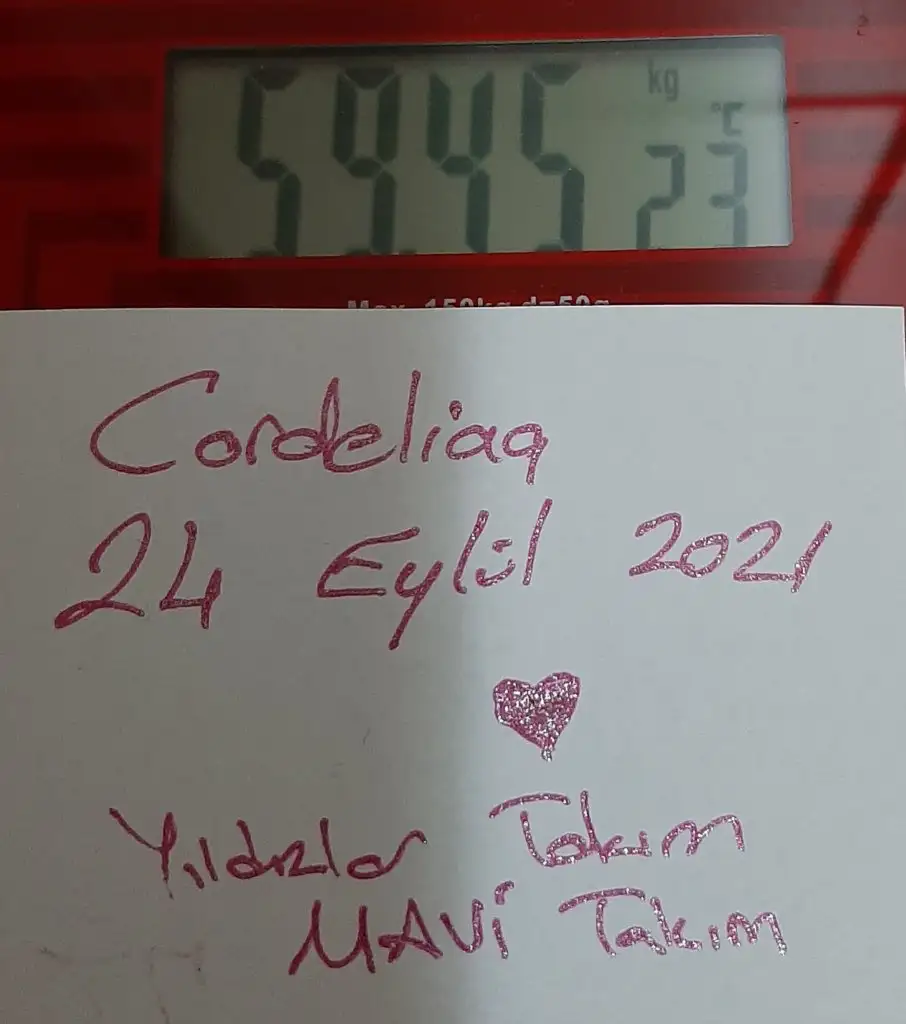 kg
59.45
°C
23
Max. 150kg d=50g
Cordeliaq
24 Eylül 2021
Yıldızlar Takım
MAVİ Takım